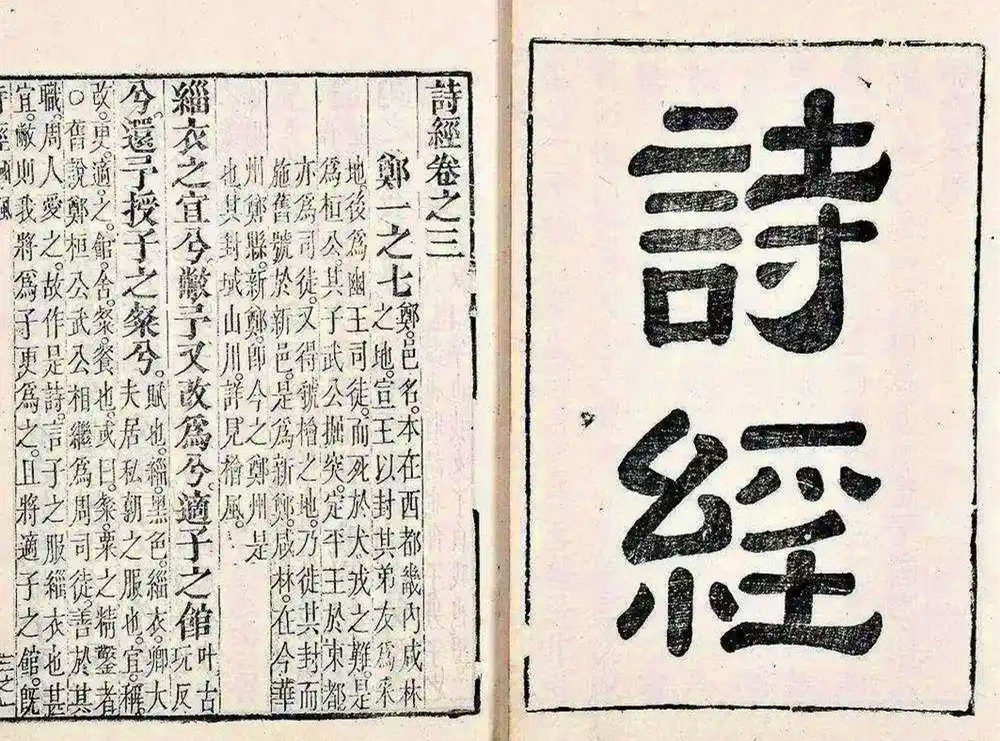 詩經
詩經卷之三
鄭一之七
鄭。邑名。本在西都畿內咸林
之地。宣王以封其弟友為采
地。後為幽王司徒。而死於犬戎之難。是
為桓公。其子武公掘突。定平王於東都
亦為司徒。又得虢檜之地。乃徙其封而
施舊號於新邑。是為新鄭。咸林。在今華
州鄭縣。新鄭。即今之鄭州。是
也。其封域山川。詳見檜風。
緇衣之宜兮。敝予又改為兮。適子之館叶古玩反
兮。還予授子之粲兮。
賦也。緇。黑色。緇衣。卿大
夫居私朝之服也。宜。稱。
改。更。適。之。館。舍。粲。餐也。或曰。粲。粟之精鑿者
○舊說鄭桓公武公相繼為周司徒。善於其
職。周人愛之。故作是詩。言子之服緇衣也甚
宜。敝則我將為子更為之。且將適子之館。既